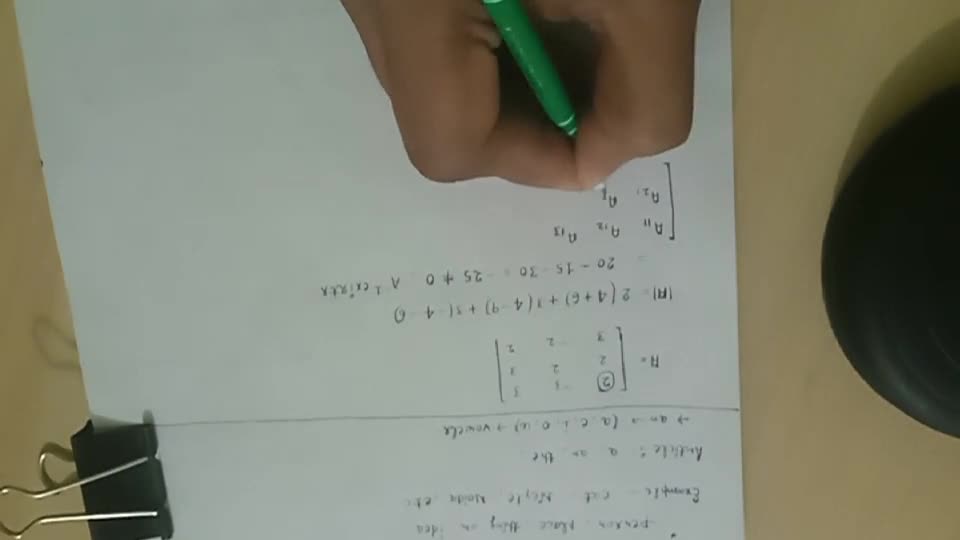 person, place thing or idea
Example - cat
Article : a an the
→ an → (a, e, i, o, u) → vowels
A = [ 2 -3 3
2 2 3
3 -2 2 ]
|A| = 2(4+6)+3(4-9)+3(-4-6)
= 20 - 15 - 30 = -25 ≠ 0 A⁻¹ exists
A11 A12 A13
A21 A